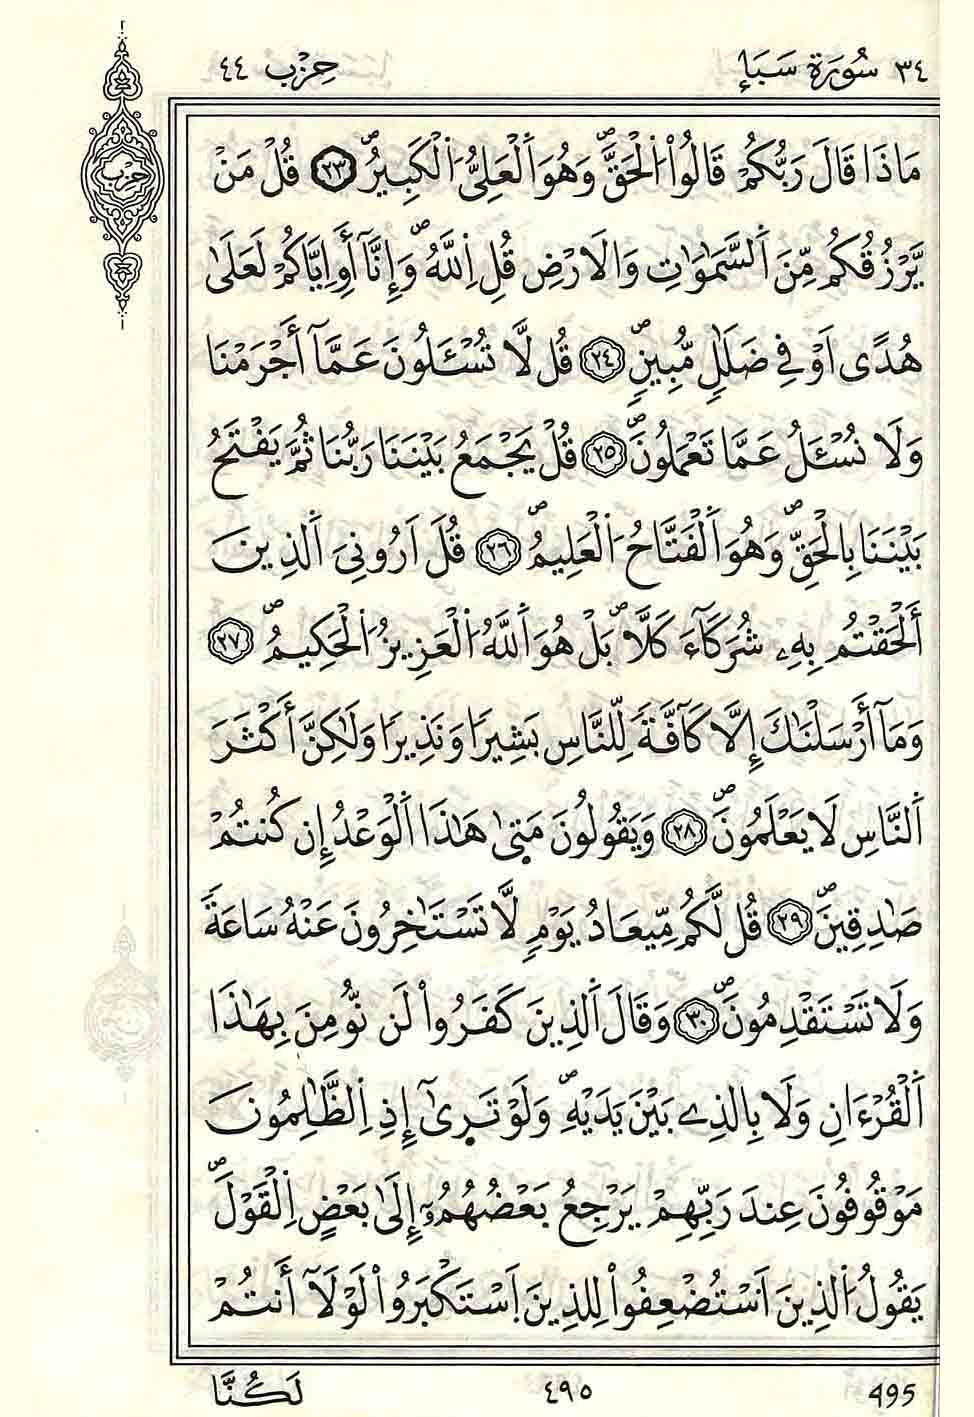 ٣٤ سُورَة سَبَإ
حِزْب ٤٤
حِزْب
مَاذَا قَالَ رَبُّكُمْ قَالُواْ اُلْحَقَّ وَهُوَ اَلْعَلِيُّ اُلْكَبِيرُ ٢٣ قُلْ مَنْ
يَّرْزُقُكُم مِّنَ اَلسَّمَٰوَٰتِ وَالَارْضِ قُلِ اِللَّهُ وَإِنَّآ أَوِ اِيَّاكُمْ لَعَلَىٰ
هُدًى اَوْ فِي ضَلَٰلٍ مُّبِينٍ ٢٤ قُل لَّا تُسْـَٔلُونَ عَمَّآ أَجْرَمْنَا
وَلَا نُسْـَٔلُ عَمَّا تَعْمَلُونَ ٢٥ قُلْ يَجْمَعُ بَيْنَنَا رَبُّنَا ثُمَّ يَفْتَحُ
بَيْنَنَا بِالْحَقِّ وَهُوَ اَلْفَتَّاحُ اُلْعَلِيمُ ٢٦ قُلَ اَرُونِيَ اَلذِينَ
أَلْحَقْتُم بِهِۦ شُرَكَآءَ كَلَّا بَلْ هُوَ اَللَّهُ اُلْعَزِيزُ اُلْحَكِيمُ ٢٧
وَمَآ أَرْسَلْنَٰكَ إِلَّا كَآفَّةً لِّلنَّاسِ بَشِيرًا وَنَذِيرًا وَلَٰكِنَّ أَكْثَرَ
اَلنَّاسِ لَا يَعْلَمُونَ ٢٨ وَيَقُولُونَ مَتىٰ هَٰذَا اَلْوَعْدُ إِن كُنتُمْ
صَٰدِقِينَ ٢٩ قُل لَّكُم مِّيعَادُ يَوْمٍ لَّا تَسْتَٰخِرُونَ عَنْهُ سَاعَةً
وَلَا تَسْتَقْدِمُونَ ٣٠ وَقَالَ اَلذِينَ كَفَرُواْ لَن نُّومِنَ بِهَٰذَا
اَلْقُرْءَانِ وَلَا بِالذِے بَيْنَ يَدَيْهِ وَلَوْ تَرىٰٓ إِذِ اِلظَّٰلِمُونَ
مَوْقُوفُونَ عِندَ رَبِّهِمْ يَرْجِعُ بَعْضُهُمُۥٓ إِلَىٰ بَعْضٍ اِلْقَوْلَ
يَقُولُ اُلذِينَ اَسْتُضْعِفُواْ لِلذِينَ اَسْتَكْبَرُواْ لَوْلَآ أَنتُمْ
لَكُنَّا
٤٩٥
495